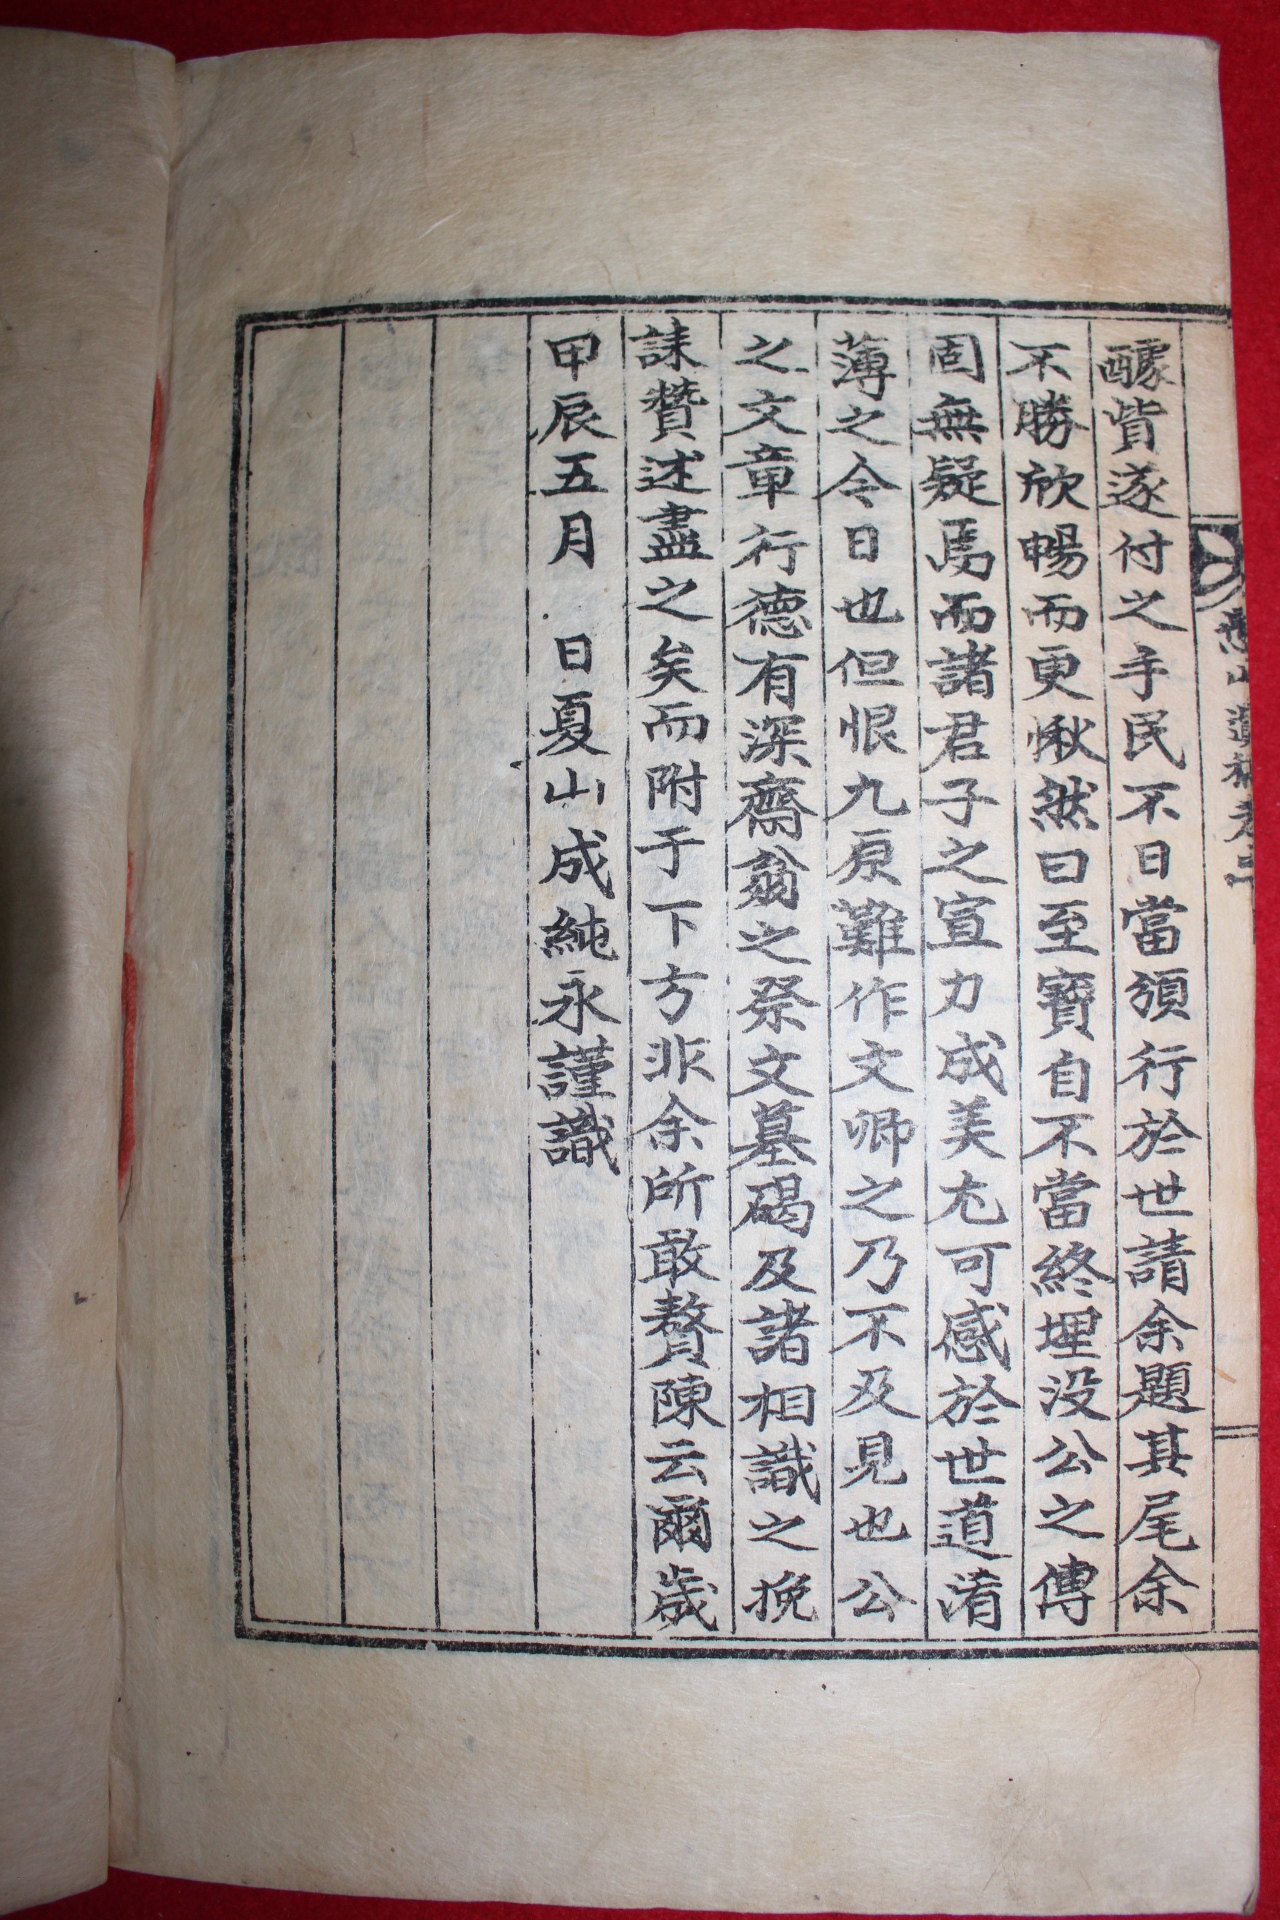 山遺稿卷二
醵貲遂付之手民不日當頒行於世請余題其尾余
不勝欣暢而更愀然曰至寶自不當終埋没公之傳
固無疑焉而諸君子之宣力成美尤可感於世道淆
薄之今日也但恨九原難作文卿之乃不及見也公
之文章行德有深齋翁之祭文墓碣及諸相識之挽
誄贊述盡之矣而附于下方非余所敢贅陳云爾歲
甲辰五月 日夏山成純永謹識